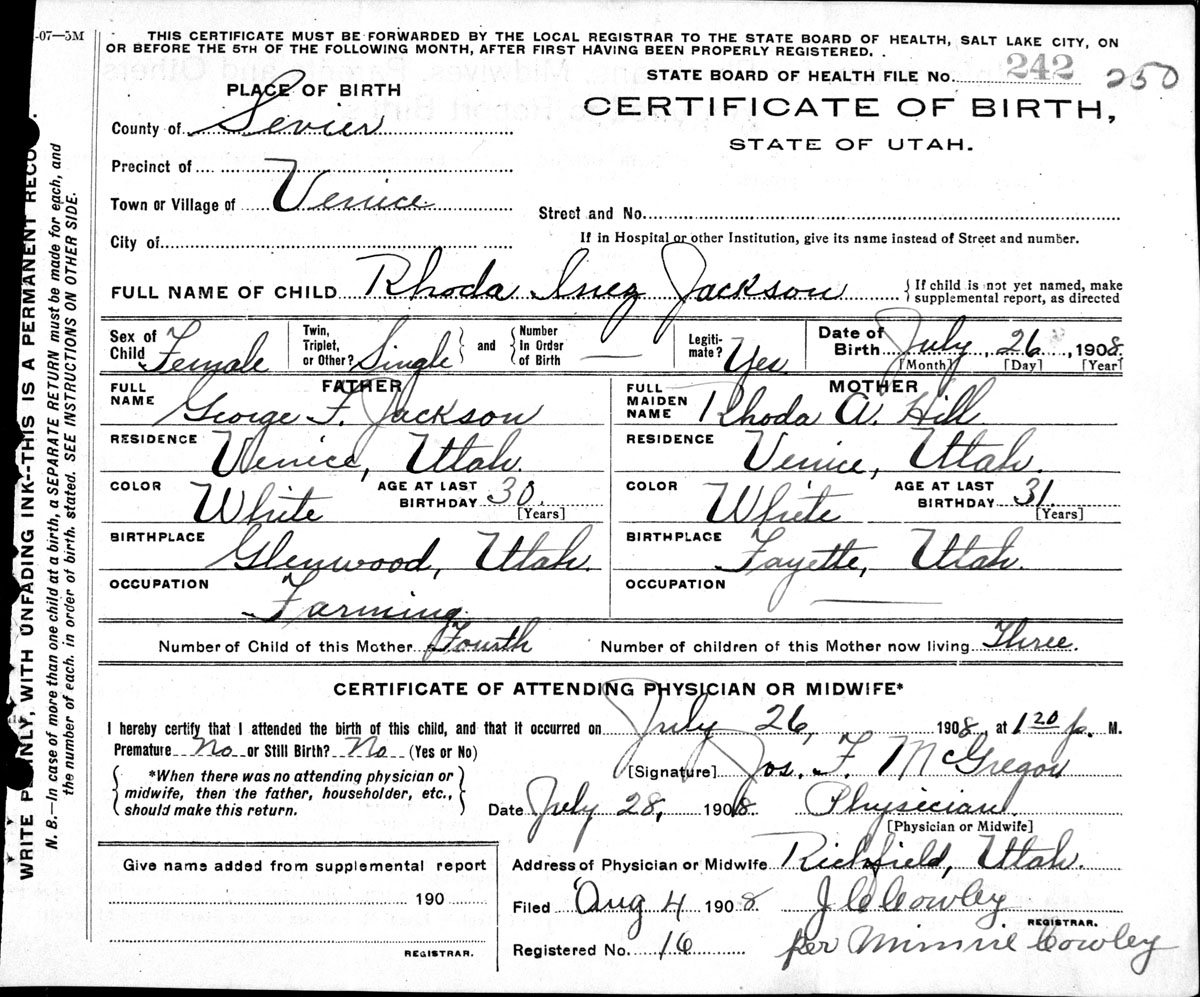 -07—5M
THIS CERTIFICATE MUST BE FORWARDED BY THE LOCAL REGISTRAR TO THE STATE BOARD OF HEALTH, SALT LAKE CITY, ON
OR BEFORE THE 5TH OF THE FOLLOWING MONTH, AFTER FIRST HAVING BEEN PROPERLY REGISTERED.
STATE BOARD OF HEALTH FILE No. 242 250
PLACE OF BIRTH
CERTIFICATE OF BIRTH,
County of Sevier
STATE OF UTAH.
Precinct of
Town or Village of Venice
Street and No.
City of
If in Hospital or other Institution, give its name instead of Street and number.
FULL NAME OF CHILD Rhoda Inez Jackson { If child is not yet named, make
supplemental report, as directed
Sex of Child Female Twin, Triplet, or Other? Single } and { Number In Order of Birth — Legiti-mate? Yes Date of Birth July 26, 1908.
[Month] [Day] [Year]
FATHER MOTHER
FULL NAME George F. Jackson FULL MAIDEN NAME Rhoda A. Hill
RESIDENCE Venice, Utah. RESIDENCE Venice, Utah.
COLOR White AGE AT LAST BIRTHDAY 30 [Years] COLOR White AGE AT LAST BIRTHDAY 31 [Years]
BIRTHPLACE Glenwood, Utah. BIRTHPLACE Fayette, Utah.
OCCUPATION Farming. OCCUPATION —
Number of Child of this Mother Fourth Number of children of this Mother now living Three.
CERTIFICATE OF ATTENDING PHYSICIAN OR MIDWIFE*
I hereby certify that I attended the birth of this child, and that it occurred on July 26, 1908, at 1 20 p. M.
Premature No or Still Birth? No (Yes or No)
[Signature] Jos. F. McGregor
{ *When there was no attending physician or
midwife, then the father, householder, etc.,
should make this return. }
Date July 28, 1908. Physician.
[Physician or Midwife]
Address of Physician or Midwife Richfield, Utah.
Give name added from supplemental report
190
REGISTRAR.
Filed Aug 4 1908 J C Cowley
REGISTRAR.
Registered No. 16 per Minnie Cowley
WRITE PLAINLY, WITH UNFADING INK--THIS IS A PERMANENT RECORD.
N. B.—In case of more than one child at a birth, a SEPARATE RETURN must be made for each, and
the number of each, in order of birth, stated. SEE INSTRUCTIONS ON OTHER SIDE.